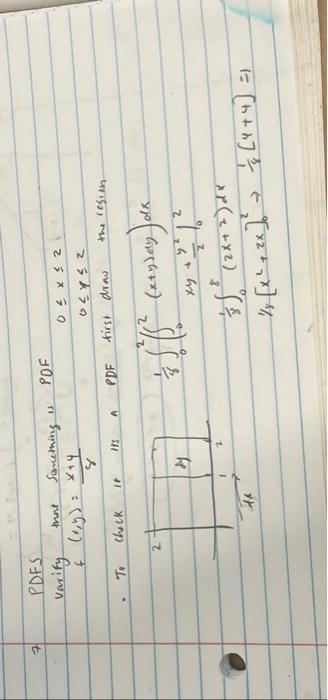 7 PDFS
Varify that Something is PDF
f (x,y) = x+y / 8 0 ≤ x ≤ 2
0 ≤ y ≤ 2
• To check if its A PDF first draw the region
2
dy
1 2
dx
1/8 ∫₀² (∫₀² (x+y)dy) dx
xy + y²/2 |₀²
1/8 ∫₀⁸ (2x+2) dx
1/8 [x² + 2x]₀² → 1/8 [4+4] = 1